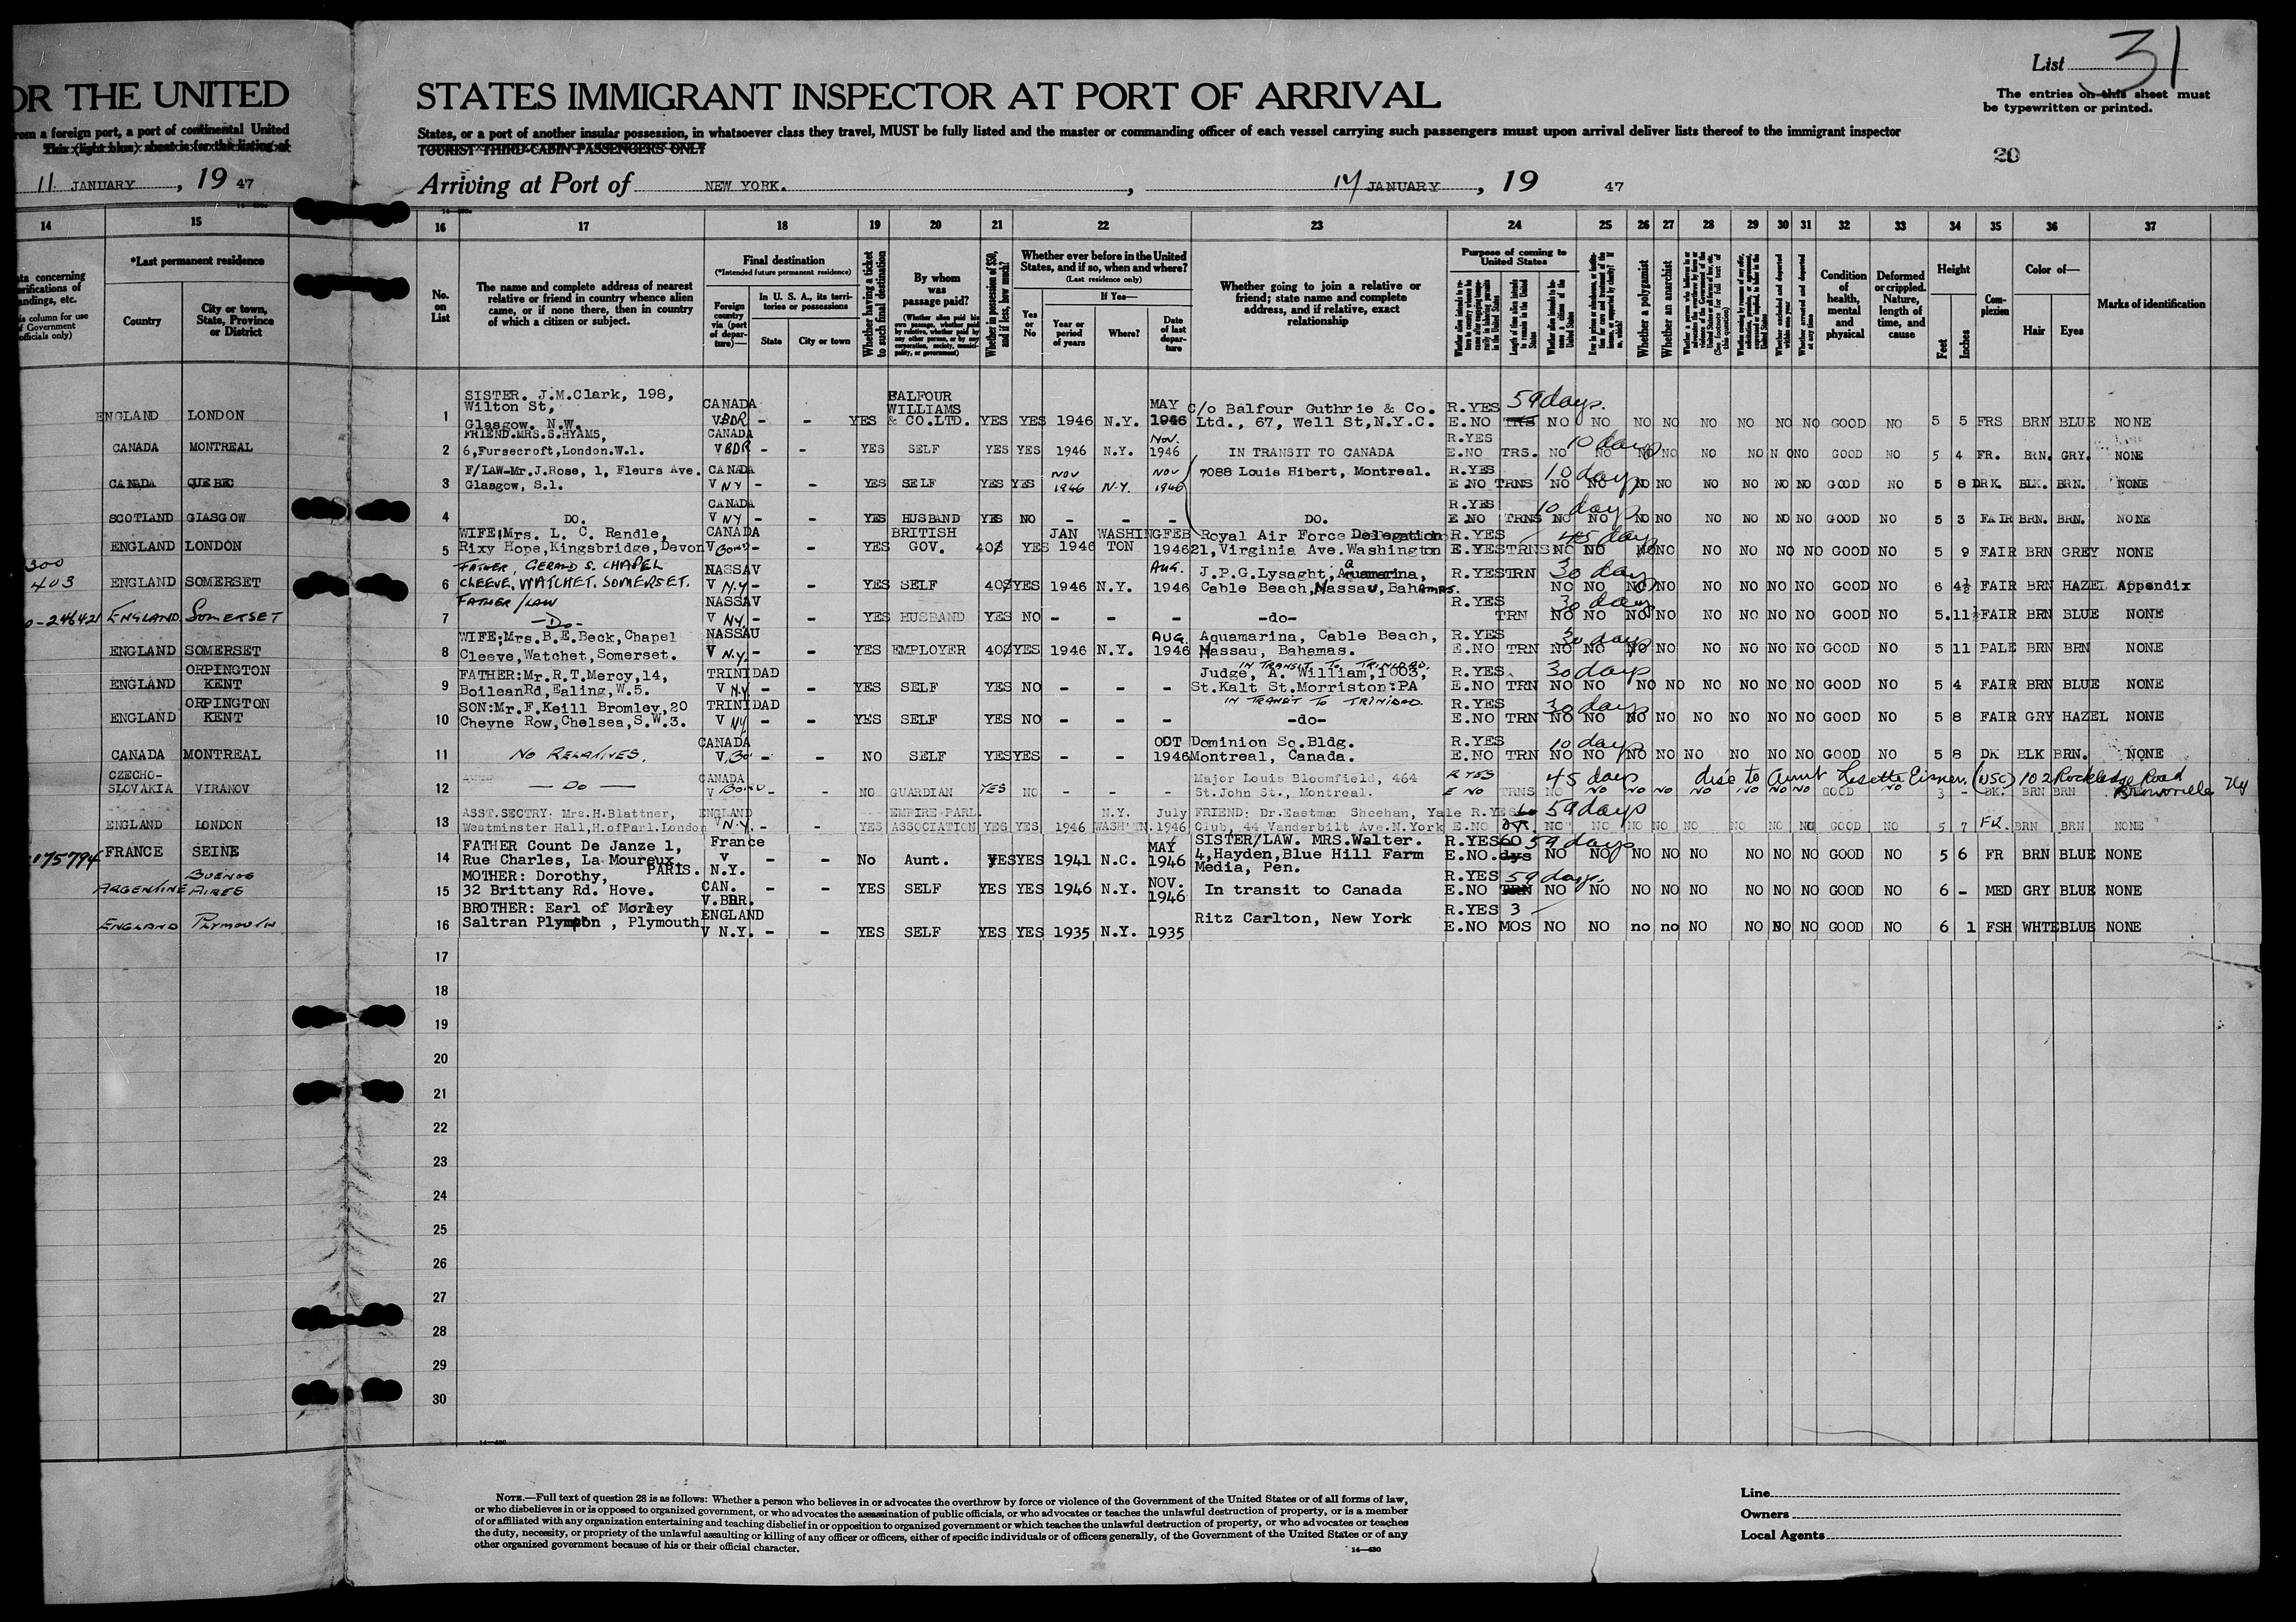 OR THE UNITED STATES IMMIGRANT INSPECTOR AT PORT OF ARRIVAL
List 31
The entries on this sheet must
be typewritten or printed.
rom a foreign port, a port of continental United States, or a port of another insular possession, in whatsoever class they travel, MUST be fully listed and the master or commanding officer of each vessel carrying such passengers must upon arrival deliver lists thereof to the immigrant inspector
This (light blue) sheet is for the listing of TOURIST THIRD-CABIN PASSENGERS ONLY
20
11 JANUARY, 19 47
Arriving at Port of NEW YORK., 14 JANUARY, 19 47
14 15 16 17 18 19 20 21 22 23 24 25 26 27 28 29 30 31 32 33 34 35 36 37
ta concerning
erifications of
andings, etc.
is column for use
f Government
officials only)
*Last permanent residence
Country
City or town,
State, Province
or District
No.
on
List
The name and complete address of nearest
relative or friend in country whence alien
came, or if none there, then in country
of which a citizen or subject.
Final destination
(*Intended future permanent residence)
Foreign
country
via (port
of depar-
ture)—
In U. S. A., its terri-
tories or possessions
State
City or town
Whether having a ticket
to such final destination
By whom
was
passage paid?
(Whether alien paid his
own passage, whether paid
by relative, whether paid by
any other person, or by any
corporation, society, munici-
pality, or government)
Whether in possession of $50,
and if less, how much?
Whether ever before in the United
States, and if so, when and where?
(Last residence only)
Yes
or
No
If Yes—
Year or
period
of years
Where?
Date
of last
depar-
ture
Whether going to join a relative or
friend; state name and complete
address, and if relative, exact
relationship
Purpose of coming to
United States
Length of time alien intends
to remain in the United
States
Whether alien intends to be-
come a citizen of the
United States
Whether a polygamist
Whether an anarchist
Condition
of
health,
mental
and
physical
Deformed
or crippled.
Nature,
length of
time, and
cause
Height
Feet
Inches
Com-
plexion
Color of—
Hair
Eyes
Marks of identification
ENGLAND LONDON 1 SISTER. J.M.Clark, 198, Wilton St, Glasgow. N.W. CANADA V BDR - - YES BALFOUR WILLIAMS & CO.LTD. YES YES 1946 N.Y. MAY 1946 C/o Balfour Guthrie & Co. Ltd., 67, Well St,N.Y.C. R.YES E.NO TRS 59 days. NO NO NO NO NO NO NO NO GOOD NO 5 5 FRS BRN BLUE NONE
CANADA MONTREAL 2 FRIEND.MRS.S.HYAMS, 6,Fursecroft,London.W.1. CANADA V BDR - - YES SELF YES YES 1946 N.Y. Nov. 1946 IN TRANSIT TO CANADA R.YES E.NO TRS. 10 days NO NO NO NO NO NO N O NO GOOD NO 5 4 FR. BRN. GRY. NONE
CANADA QUEBEC 3 F/LAW-Mr.J.Rose, 1, Fleurs Ave. Glasgow, S.1. CANADA V NY - - YES SELF YES YES NOV 1946 N.Y. NOV 1946 7088 Louis Hibert, Montreal. R.YES E.NO TRNS 10 days NO NO NO NO NO NO NO NO GOOD NO 5 8 DRK. BLK. BRN. NONE
SCOTLAND GLASGOW 4 DO. CANADA V NY - - YES HUSBAND YES NO - - - DO. R.YES E.NO TRNS 10 days NO NO NO NO NO NO NO NO GOOD NO 5 3 FAIR BRN. BRN. NONE
ENGLAND LONDON 5 WIFE;Mrs. L. C. Randle, Rixy Hope,Kingsbridge,Devon CANADA V - - YES BRITISH GOV. 40$ YES JAN 1946 WASHINGTON FEB 1946 Royal Air Force Delegation 21,Virginia Ave.Washington R.YES E.YES TRNS 45 days NO NO NO NO NO NO NO NO GOOD NO 5 9 FAIR BRN GREY NONE
300
403
ENGLAND SOMERSET 6 FATHER, GERALD S. CHAPEL CLEEVE, WATCHET. SOMERSET. NASSAV V N.Y. - - YES SELF 40$ YES 1946 N.Y. AUG. 1946 J.P.G.Lysaght, Aquamarina, Cable Beach,Nassau, Bahamas. R.YES TRN 30 days NO NO NO NO NO NO NO NO GOOD NO 6 4½ FAIR BRN HAZEL Appendix
0-246421 ENGLAND SOMERSET 7 FATHER/LAW -Do- NASSAV V NY. - - YES HUSBAND YES NO - - - -do- R.YES TRN 30 days NO NO NO NO NO NO NO NO GOOD NO 5.11½ FAIR BRN BLUE NONE
ENGLAND SOMERSET 8 WIFE;Mrs.B.E.Beck,Chapel Cleeve,Watchet,Somerset. NASSAU V N.Y. - - YES EMPLOYER 40$ YES 1946 N.Y. AUG. 1946 Aquamarina, Cable Beach, Nassau, Bahamas. R.YES E.NO TRN 30 days NO NO NO NO NO NO NO NO GOOD NO 5 11 PALE BRN BRN NONE
ENGLAND ORPINGTON KENT 9 FATHER:Mr.R.T.Mercy,14, BoileanRd,Ealing,W.5. TRINIDAD V N.Y. - - YES SELF YES NO - - - IN TRANSIT TO TRINIDAD. Judge, A. William,1003, St.Kalt St.Morriston:PA R.YES E.NO TRN 30 days NO NO NO NO NO NO NO NO GOOD NO 5 4 FAIR BRN BLUE NONE
ENGLAND ORPINGTON KENT 10 SON:Mr.F.Keill Bromley,20 Cheyne Row,Chelsea,S.W.3. TRINIDAD V NY - - YES SELF YES NO - - - IN TRANSIT TO TRINIDAD. -do- R.YES E.NO TRN 30 days NO NO NO NO NO NO NO NO GOOD NO 5 8 FAIR GRY HAZEL NONE
CANADA MONTREAL 11 NO RELATIVES. CANADA V. Bo - - NO SELF YES YES - - OCT 1946 Dominion Sq.Bldg. Montreal, Canada. R.YES E.NO TRN 10 days NO NO NO NO NO NO NO NO GOOD NO 5 8 DK BLK BRN. NONE
CZECHO-SLOVAKIA VIRANOV 12 — Do — CANADA V - - NO GUARDIAN YES NO - - - Major Louis Bloomfield, 464 St.John St., Montreal. R YES E NO TRNS 45 days NO NO NO NO NO NO NO NO GOOD NO 3 - DK. BRN BRN disc to Aunt Lisette Eisner. (USC) 102 Rockledge Road Bronxville NY
ENGLAND LONDON 13 ASST.SECTRY: Mrs.H.Blattner, Westminster Hall,H.ofParl.London ENGLAND V N.Y. - - YES EMPIRE-PARL. ASSOCIATION YES YES 1946 N.Y. WASH'TN. July 1946 FRIEND: Dr.Eastman Sheehan, Yale Club, 44 Vanderbilt Ave.N.York R.YES E.NO 60 59 days NO NO NO NO NO NO NO NO GOOD NO 5 7 FR. BRN BRN NONE
175794 FRANCE SEINE 14 FATHER Count De Janze 1, Rue Charles, La Moureux. PARIS. France V N.Y. - - No Aunt. YES YES 1941 N.C. MAY 1946 SISTER/LAW. MRS.Walter. 4,Hayden,Blue Hill Farm Media, Pen. R.YES E.NO. 60 dys 59 days NO NO NO NO NO NO NO NO GOOD NO 5 6 FR BRN BLUE NONE
ARGENTINE BUENOS AIRES 15 MOTHER: Dorothy, 32 Brittany Rd. Hove. CAN. V.BDR. - - YES SELF YES YES 1946 N.Y. NOV. 1946 In transit to Canada R.YES E.NO TRN 59 days. NO NO NO NO NO NO NO NO GOOD NO 6 - MED GRY BLUE NONE
ENGLAND PLYMOUTH 16 BROTHER: Earl of Morley Saltran Plympton , Plymouth ENGLAND V N.Y. - - YES SELF YES YES 1935 N.Y. 1935 Ritz Carlton, New York R.YES E.NO 3 MOS NO NO no no NO NO NO NO GOOD NO 6 1 FSH WHTE BLUE NONE
17
18
19
20
21
22
23
24
25
26
27
28
29
30
NOTE.—Full text of question 28 is as follows: Whether a person who believes in or advocates the overthrow by force or violence of the Government of the United States or of all forms of law,
or who disbelieves in or is opposed to organized government, or who advocates the assassination of public officials, or who advocates or teaches the unlawful destruction of property, or is a member
of or affiliated with any organization entertaining and teaching disbelief in or opposition to organized government or which teaches the unlawful destruction of property, or who advocates or teaches
the duty, necessity, or propriety of the unlawful assaulting or killing of any officer or officers, either of specific individuals or of officers generally, of the Government of the United States or of any
other organized government because of his or their official character.
14—430
Line
Owners
Local Agents